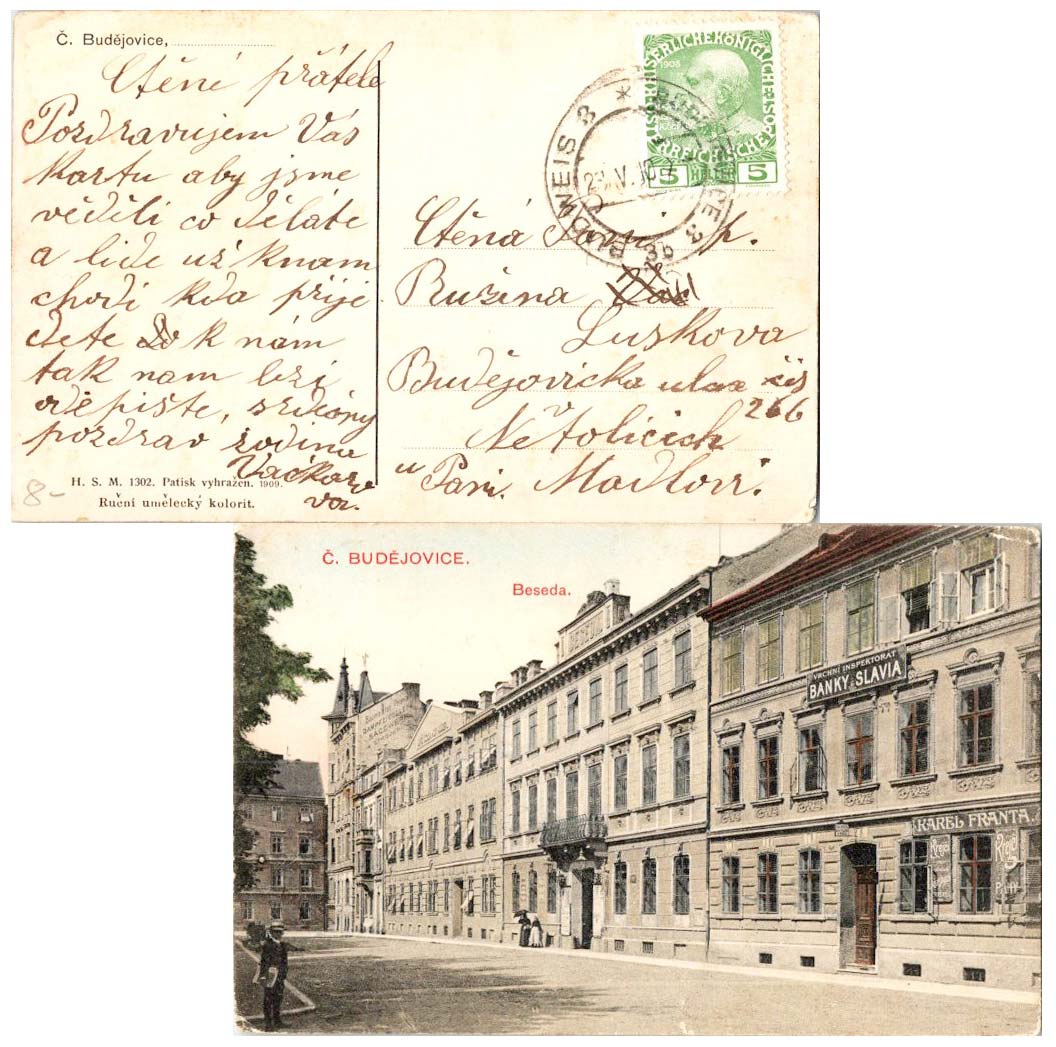 Č. Budějovice,
Ctění přátele
Pozdravujem Vás
kartu aby jsme
věděli co děláte
a lide už knam
chodi kda přije
dete k nám
tak nam
odepište, srdečny
pozdrav rodina
Vačkářo
va.
H. S. M. 1302. Patisk vyhražen. 1909.
Ruční umělecký kolorit.
8-
KAISERLICHE KÖNIGLICHE ÖSTERREICHISCHE
1908
5 HELLER 5
BUDWEIS 3
BUDĚJOVICE 3
V. 10
3b
Ctěná
Ružina
Luskova
Budějovicka ulax čis
266
Netolicich
u Pani. Madlovi.
Č. BUDĚJOVICE.
Beseda.
BESEDA
VRCHNÍ INSPEKTORÁT
BANKY SLAVIA
KAREL FRANTA
Krejčí